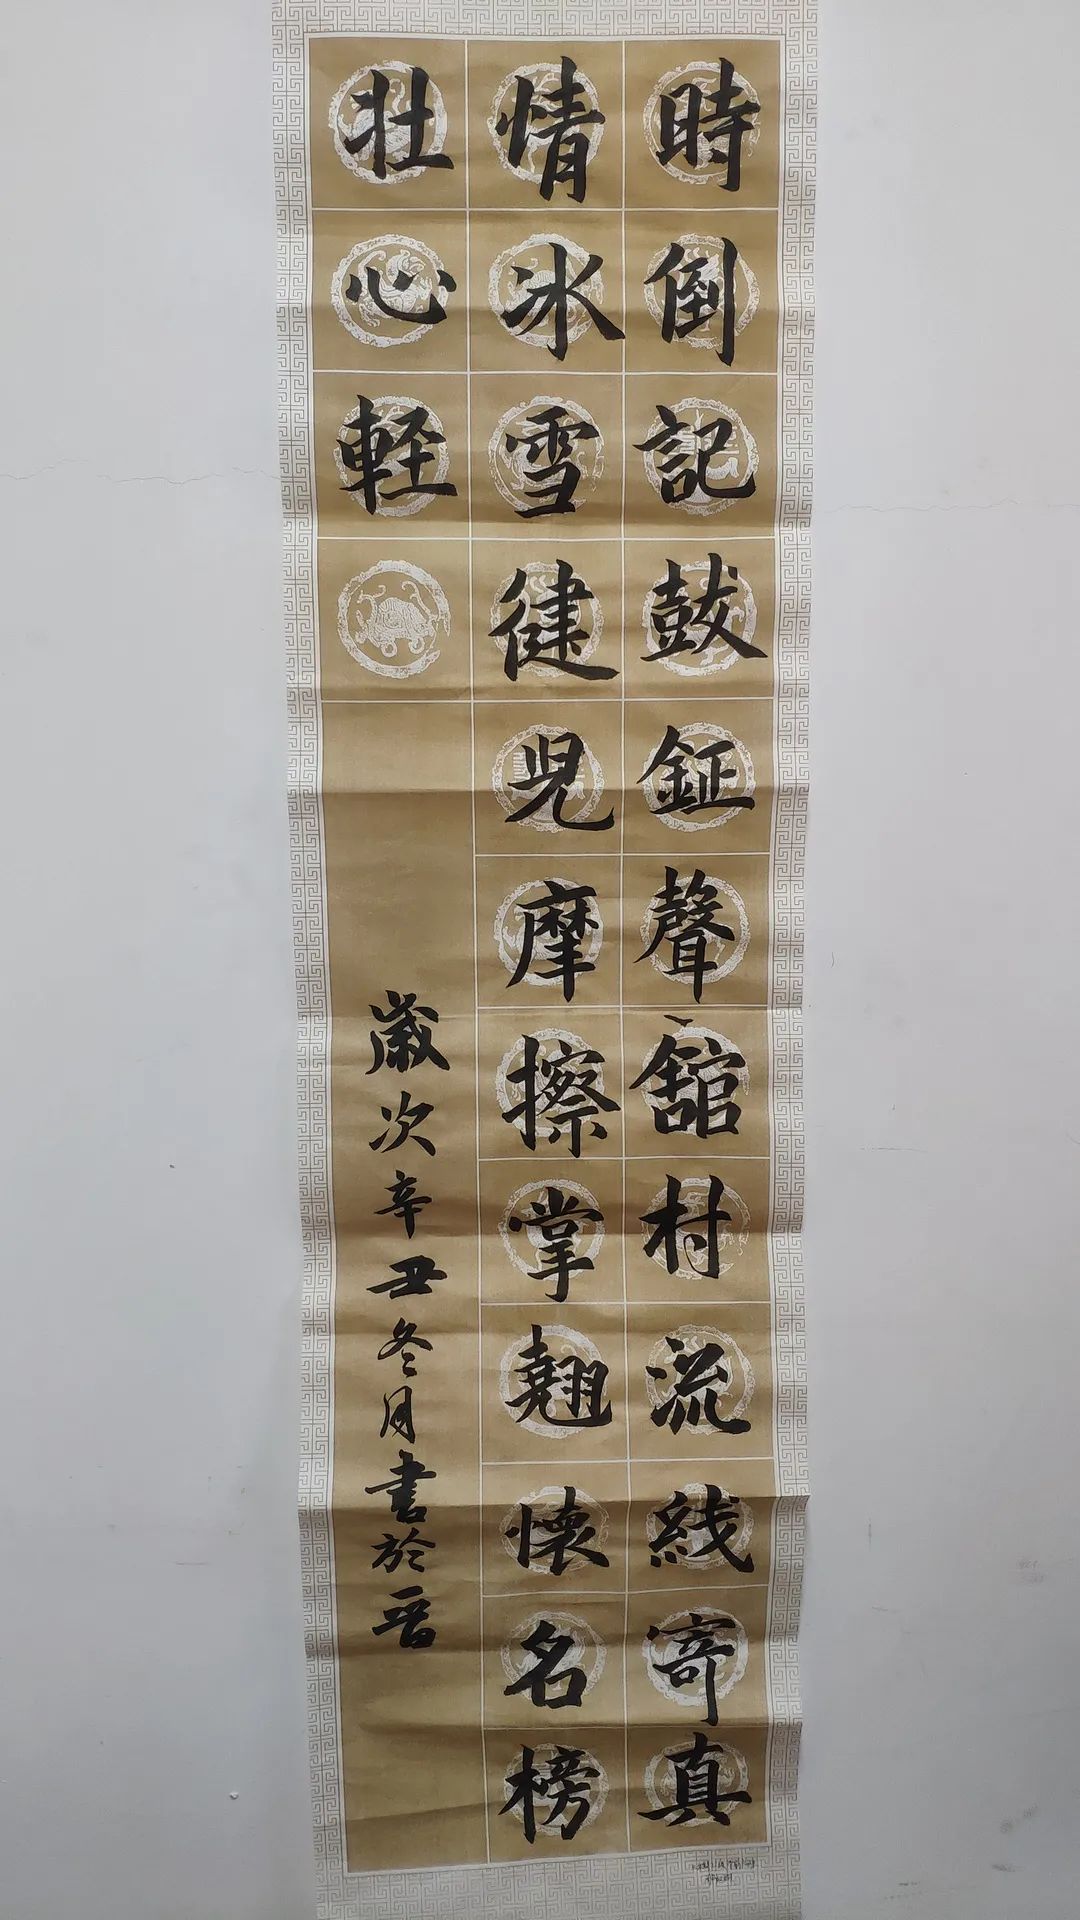 時倒記鼓鉦聲舘村流线寄真
情冰雪健児摩擦掌翘懷名榜
壮心軽
歲次辛丑冬月書於晋